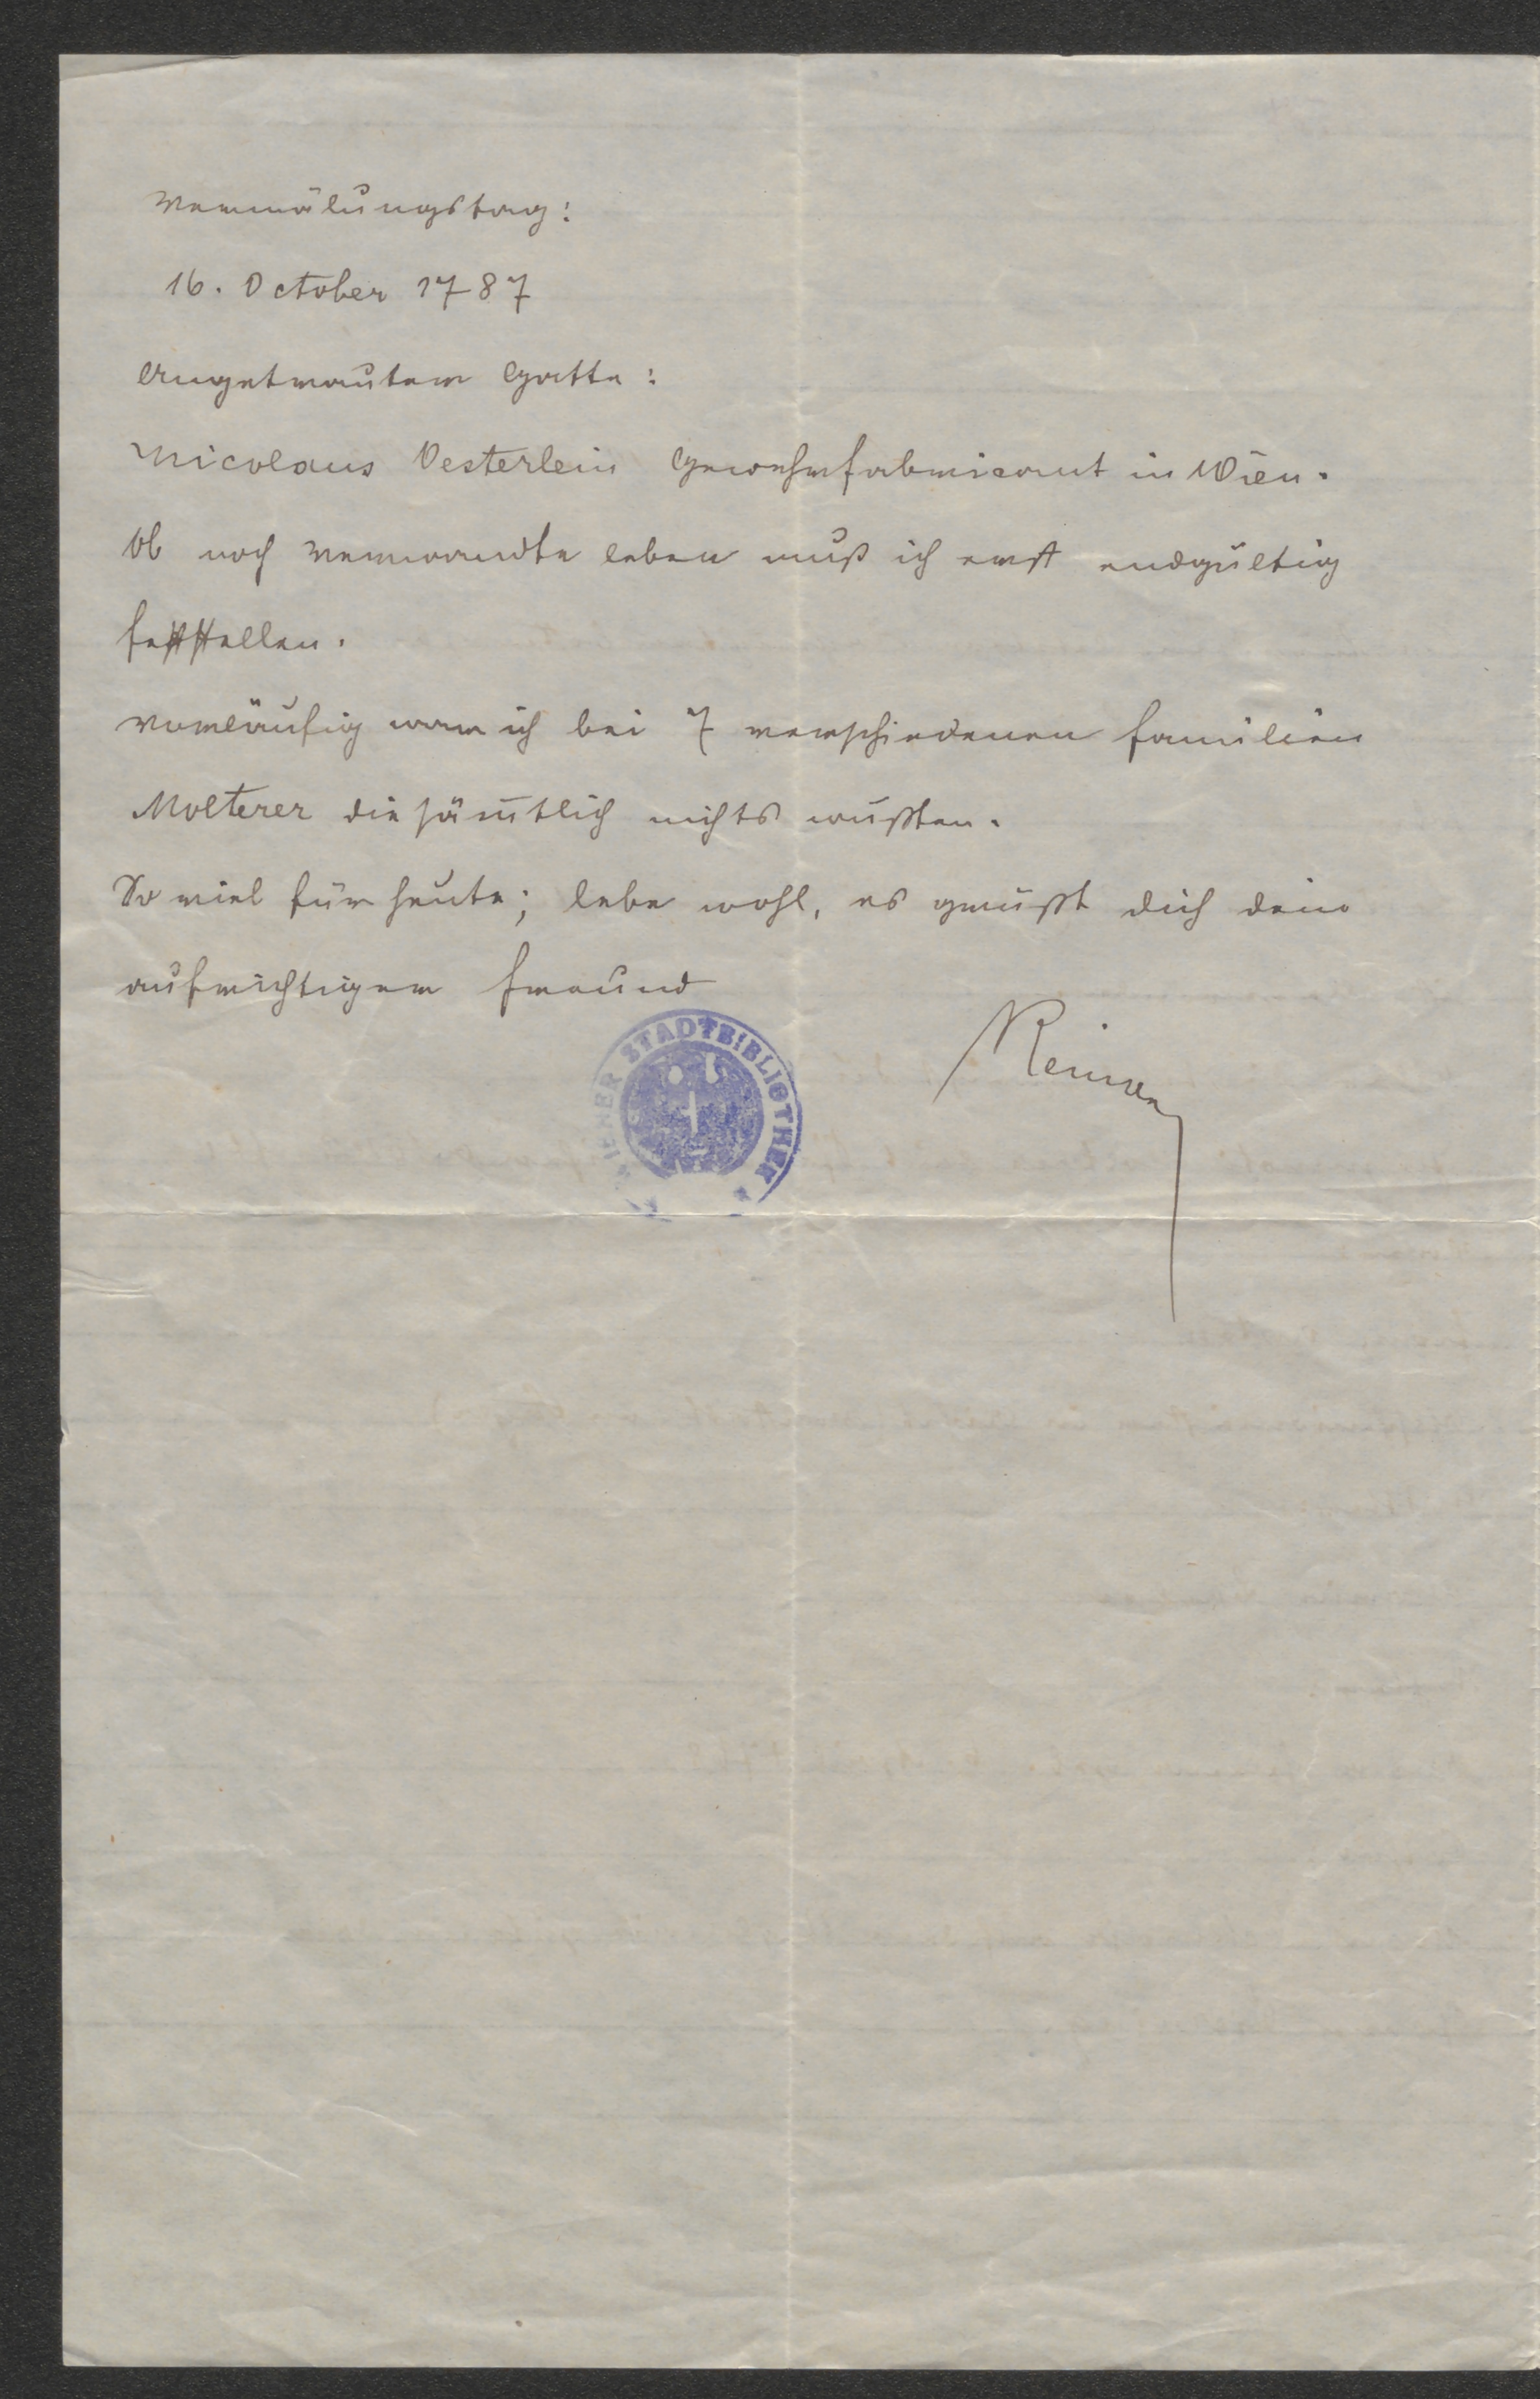 Vermälungstag:
16. October 1787
Angetrauter Gatte:
Nicolaus Oesterlein Gewehrfabricant in Wien.
Ob noch Verwandte leben muß ich erst endgültig
feststellen.
Vorläufig war ich bei 7 verschiedenen Familien
Molterer die sämtlich nichts wußten.
So viel für heute; lebe wohl, es grüßt dich dein
aufrichtiger Freund
WIENER STADTBIBLIOTHEK